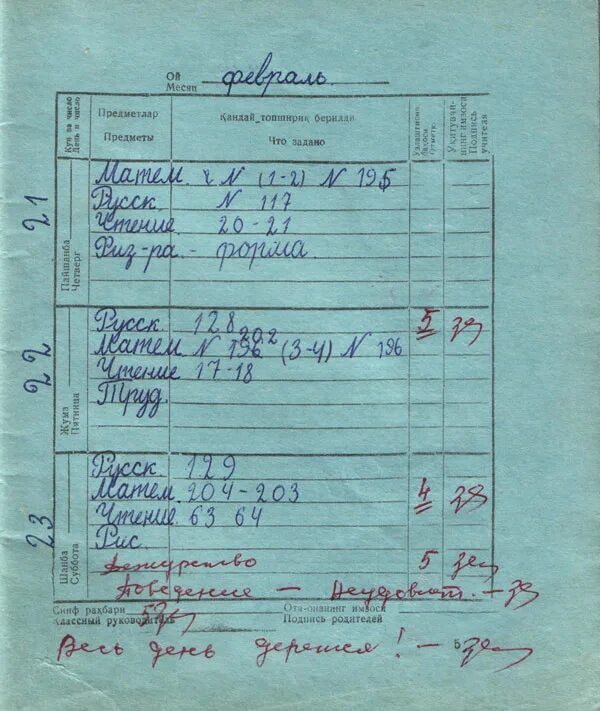 Ой
Месяц февраль
Кун ва число
День и число
Предметлар
Предметы
Қандай топшириқ берилди
Что задано
Ўзлаштириш баҳоси
Отметка
Ўқитувчининг имзоси
Подпись учителя
Пайшанба
Четверг
21
Матем. č N (1-2) N 195
Русск. N 117
Чтение 20-21
Физ-ра - форма
Жума
Пятница
22
Русск. 128 5
202
Матем N 196 (3-4) N 196
Чтение 17-18
Труд.
Шанба
Суббота
23
Русск. 129
Матем. 204-203 4
Чтение 63 64
Рис.
Дежурство 5
Поведение — Неудовлет.
Синф раҳбари
Классный руководитель
Ота-онанинг имзоси
Подпись родителей
Весь день дерется! —
5